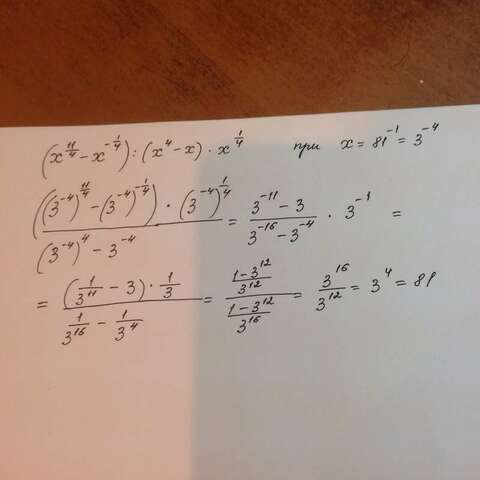 (x^{11/4} - x^{-1/4}) : (x^4 - x) · x^{1/4} при x = 81^{-1} = 3^{-4}
\frac{((3^{-4})^{11/4} - (3^{-4})^{-1/4}) · (3^{-4})^{1/4}}{(3^{-4})^4 - 3^{-4}} = \frac{3^{-11} - 3}{3^{-16} - 3^{-4}} · 3^{-1} =
= \frac{(\frac{1}{3^{11}} - 3) · \frac{1}{3}}{\frac{1}{3^{16}} - \frac{1}{3^4}} = \frac{\frac{1 - 3^{12}}{3^{12}}}{\frac{1 - 3^{12}}{3^{16}}} = \frac{3^{16}}{3^{12}} = 3^4 = 81